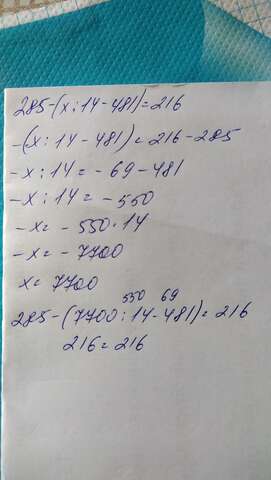 285-(x:14-481)=216
-(x:14-481)=216-285
-x:14=-69-481
-x:14=-550
-x=-550·14
-x=-7700
x=7700
550 69
285-(7700:14-481)=216
216=216